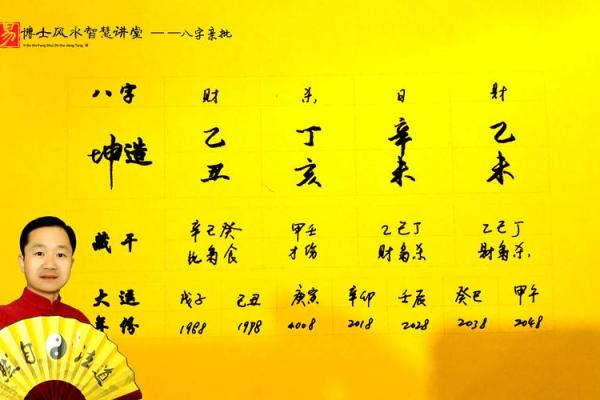 易 博士风水智慧讲堂 ——八字亲批
Yi Bo Shi Feng Shui Zhi Hui Jiang Tang
八字 财 杀 日 财
坤造 乙 丁 辛 乙
丑 亥 未 未
藏干 辛己癸 甲壬 乙己丁 乙己丁
比枭食 才伤 财枭杀 财枭杀.
大运 戊子 己丑 庚寅 辛卯 壬辰 癸巳 甲午
年份 1988 1998 2008 2018 2028 2038 2048
然自法道